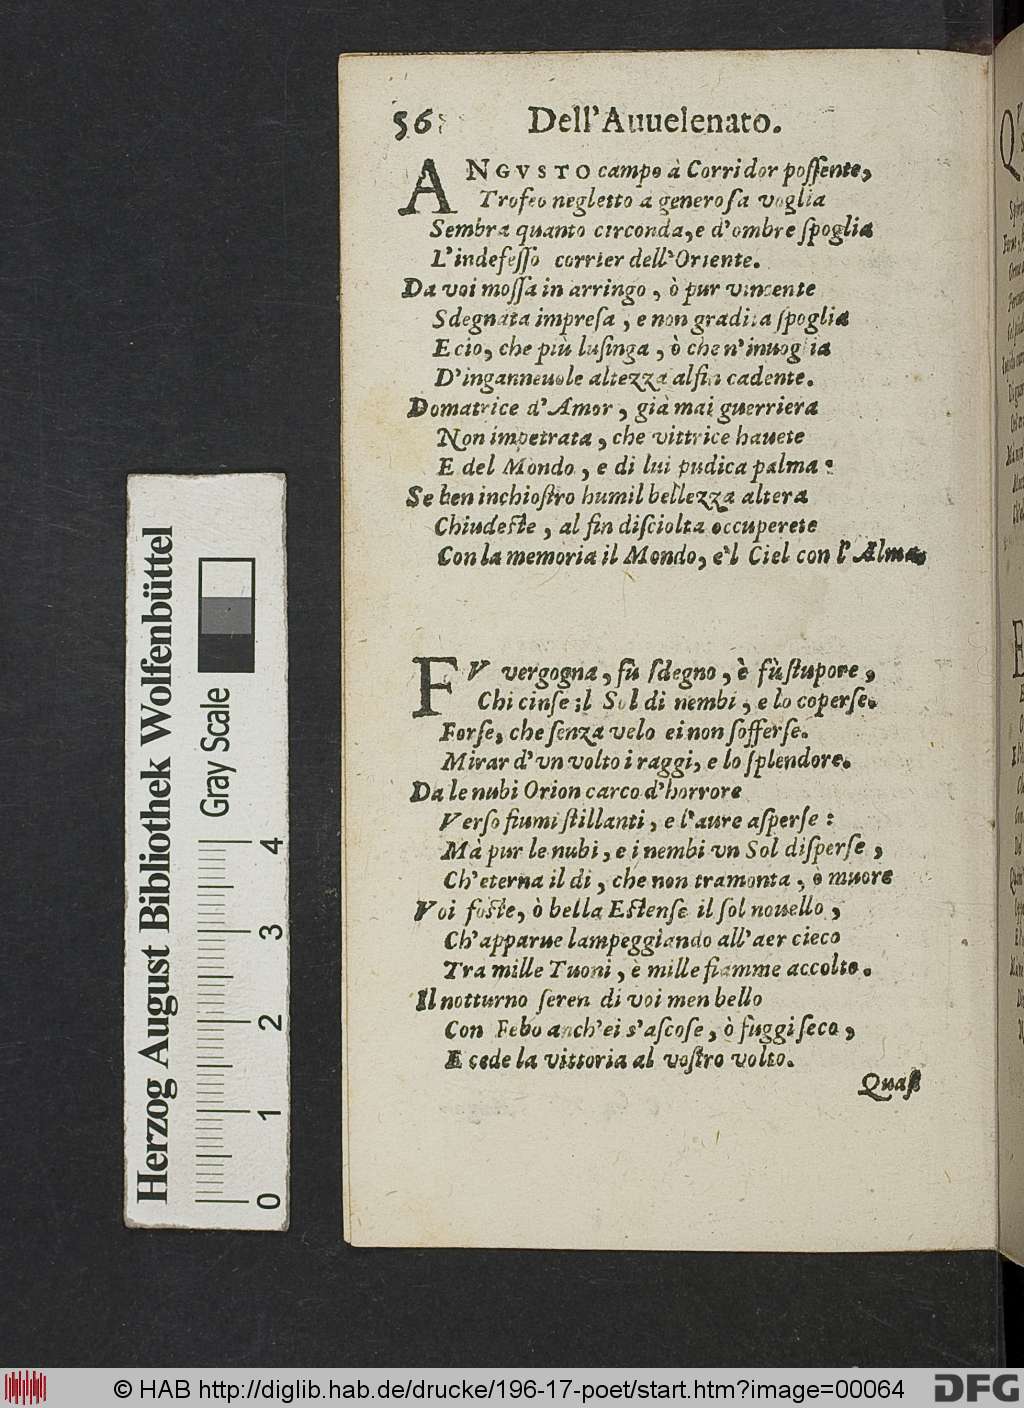 56
Dell'Auuelenato.
ANGVSTO campo à Corridor poſſente,
Trofeo negletto a generoſa voglia
Sembra quanto circonda, e d'ombre ſpoglia
L'indefeſſo corrier dell'Oriente.
Da voi moſſa in arringo, ò pur vincente
Sdegnata impreſa, e non gradita ſpoglia
E cio, che più luſinga, ò che n'inuoglia
D'inganneuole altezza alfin cadente.
Domatrice d'Amor, già mai guerriera
Non impetrata, che vittrice hauete
E del Mondo, e di lui pudica palma:
Se ben inchioſtro humil bellezza altera
Chiudeſte, al fin diſciolta occuperete
Con la memoria il Mondo, e'l Ciel con l'Alma.
FV vergogna, fù ſdegno, è fù ſtupore,
Chi cinſe il Sol di nembi, e lo coperſe.
Forſe, che ſenza velo ei non ſofferſe.
Mirar d'vn volto i raggi, e lo ſplendore.
Da le nubi Orion carco d'horrore
Verſo fiumi ſtillanti, e l'aure aſperſe:
Mà pur le nubi, e i nembi vn Sol diſperſe,
Ch'eterna il di, che non tramonta, o muore
Voi foſte, ò bella Eſtenſe il ſol nouello,
Ch'apparue lampeggiando all'aer cieco
Tra mille Tuoni, è mille fiamme accolto.
Il notturno ſeren di voi men bello
Con Febo anch'ei s'aſcoſe, ò fuggi ſeco,
E cede la vittoria al voſtro volto.
Quaſi
Herzog August Bibliothek Wolfenbüttel
Gray Scale
0 1 2 3 4
© HAB http://diglib.hab.de/drucke/196-17-poet/start.htm?image=00064
DFG